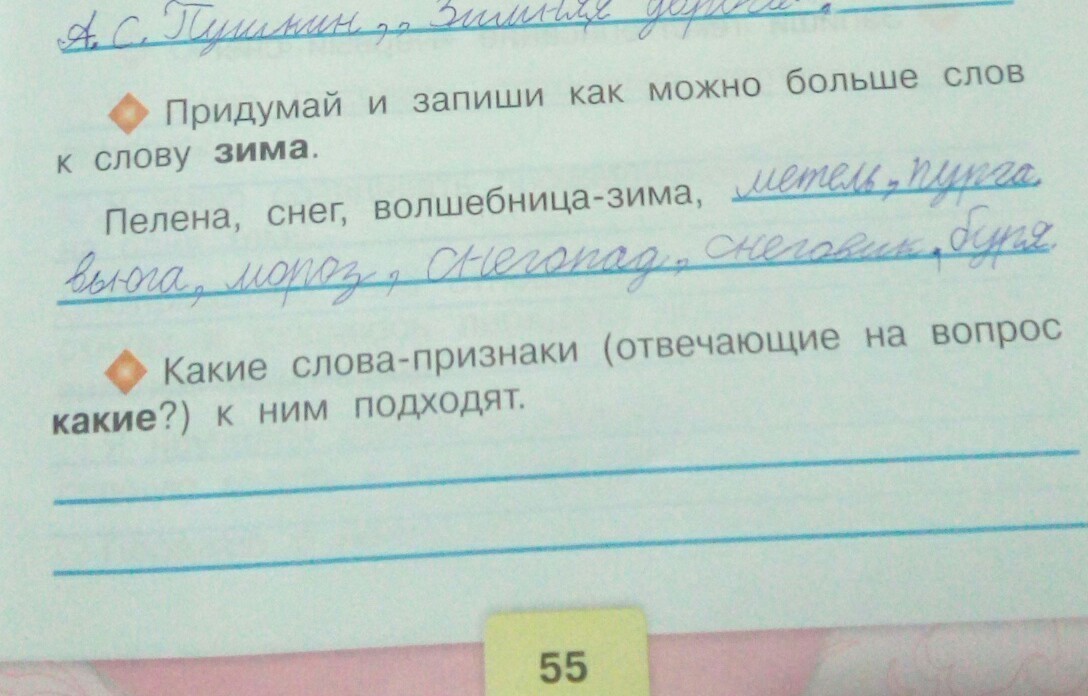 А. С. Пушкин „Зимняя дорога".
Придумай и запиши как можно больше слов
к слову зима.
Пелена, снег, волшебница-зима, метель, пурга,
вьюга, мороз, снегопад, снеговик, буря.
Какие слова-признаки (отвечающие на вопрос
какие?) к ним подходят.
55